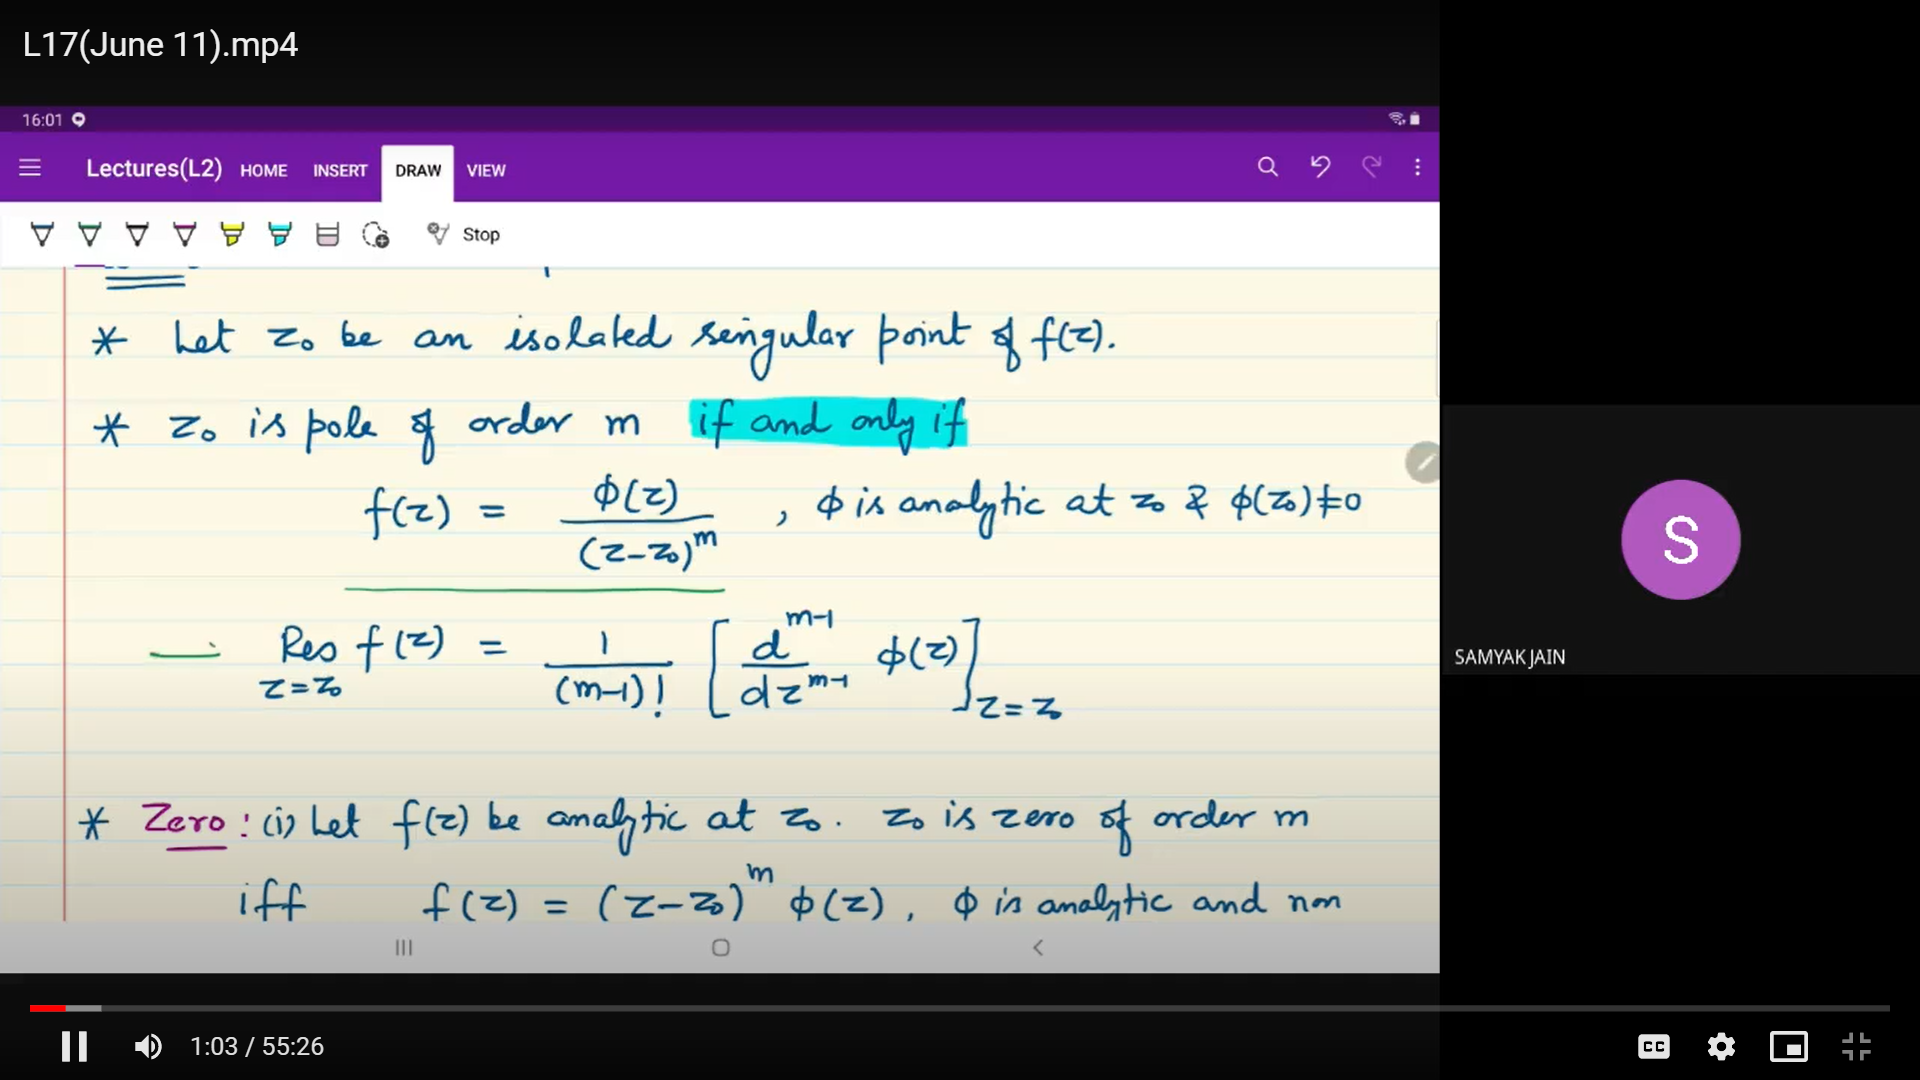 L17(June 11).mp4
16:01
Lectures(L2) HOME INSERT DRAW VIEW
Stop
* Let z₀ be an isolated singular point of f(z).
* z₀ is pole of order m if and only if
f(z) = ϕ(z) / (z-z₀)^m , ϕ is analytic at z₀ & ϕ(z₀)≠0
Res_{z=z₀} f(z) = 1/(m-1)! [d^{m-1}/dz^{m-1} ϕ(z)]_{z=z₀}
* Zero: (i) Let f(z) be analytic at z₀. z₀ is zero of order m
iff f(z) = (z-z₀)^m ϕ(z), ϕ is analytic and non
S
SAMYAK JAIN
1:03 / 55:26
CC